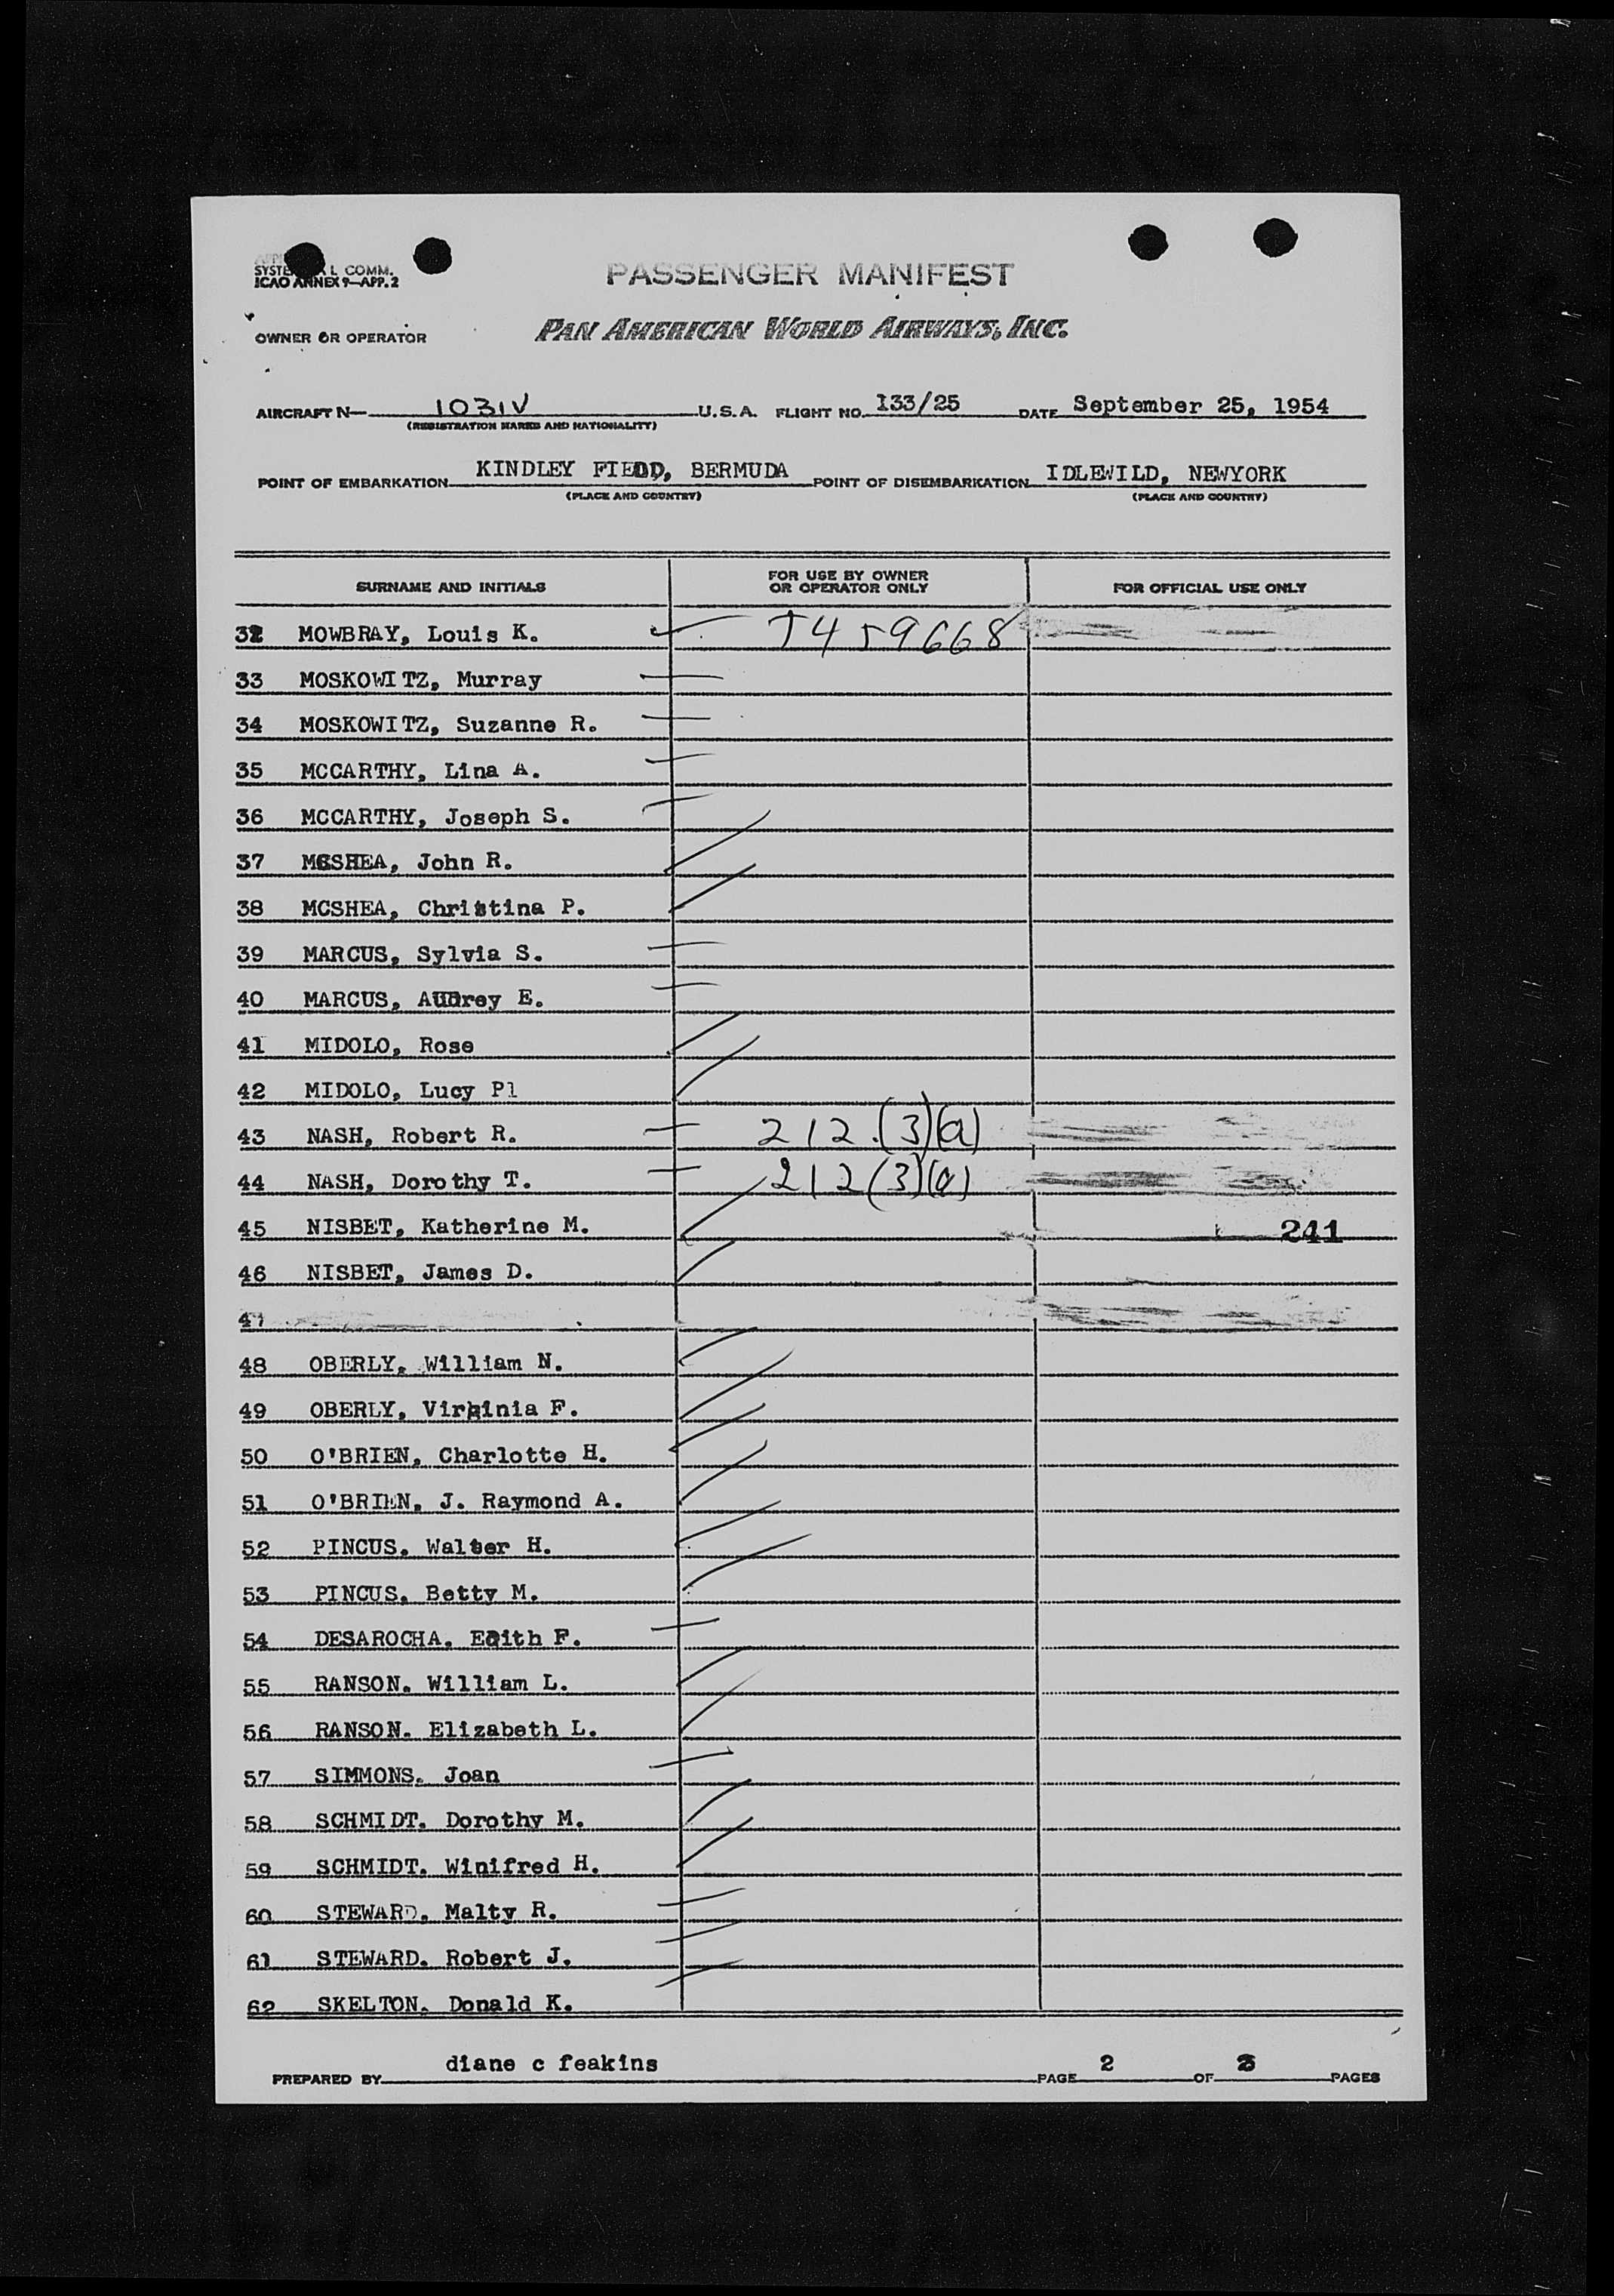 SYSTE L COMM.
ICAO ANNEX 9—APP. 2
PASSENGER MANIFEST
OWNER OR OPERATOR PAN AMERICAN WORLD AIRWAYS, INC.
AIRCRAFT N— 1031V U.S.A. FLIGHT NO. 133/25 DATE September 25, 1954
(REGISTRATION MARKS AND NATIONALITY)
POINT OF EMBARKATION KINDLEY FIEDD, BERMUDA POINT OF DISEMBARKATION IDLEWILD, NEWYORK
(PLACE AND COUNTRY) (PLACE AND COUNTRY)
SURNAME AND INITIALS FOR USE BY OWNER OR OPERATOR ONLY FOR OFFICIAL USE ONLY
32 MOWBRAY, Louis K. J459668
33 MOSKOWITZ, Murray
34 MOSKOWITZ, Suzanne R.
35 MCCARTHY, Lina A.
36 MCCARTHY, Joseph S.
37 MCSHEA, John R.
38 MCSHEA, Christina P.
39 MARCUS, Sylvia S.
40 MARCUS, Audrey E.
41 MIDOLO, Rose
42 MIDOLO, Lucy Pl
43 NASH, Robert R. 212.(3)(a)
44 NASH, Dorothy T. 212(3)(a)
45 NISBET, Katherine M. 241
46 NISBET, James D.
47
48 OBERLY, William N.
49 OBERLY, Virginia F.
50 O'BRIEN, Charlotte H.
51 O'BRIEN, J. Raymond A.
52 PINCUS. Walter H.
53 PINCUS. Betty M.
54 DESAROCHA. Edith F.
55 RANSON. William L.
56 RANSON. Elizabeth L.
57 SIMMONS. Joan
58 SCHMIDT. Dorothy M.
59 SCHMIDT. Winifred H.
60 STEWARD. Malty R.
61 STEWARD. Robert J.
62 SKELTON. Donald K.
PREPARED BY diane c feakins PAGE 2 OF 3 PAGES